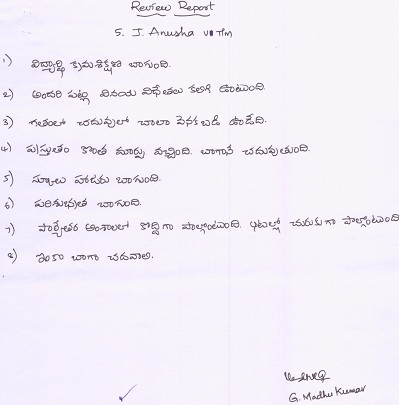 Review Report
5. J. Anusha VII TM
1) విద్యార్థి క్రమశిక్షణ బాగుంది.
2) అందరి పట్ల వినయ విధేతలు కలిగి ఊటుంది.
3) గతంలో చదువులో చాలా వెనకబడి ఊడేది.
4) ప్రస్తుతం కొంత మార్పు వచ్చింది. బాగానే చదువుతుంది.
5) స్కూలు హాజరు బాగుంది.
6) పరిశుభ్రత బాగుంది.
7) పాఠ్యేతర అంశాలలో కొద్దిగా పాల్గొంటుంది. ఆటల్లో చురుకుగా పాల్గొంటుంది
8) ఇంకా బాగా చదవాలి.
G. Madhu Kumar